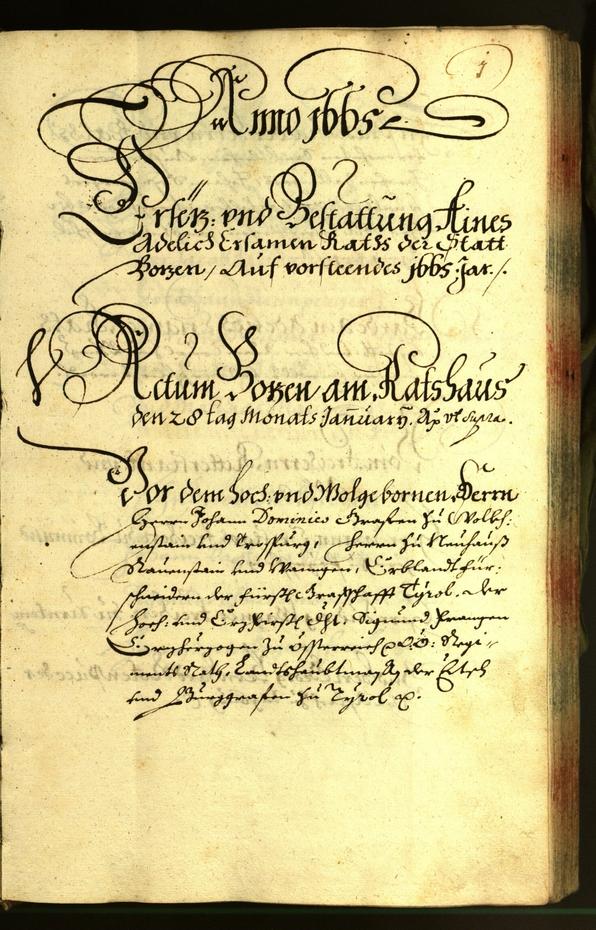 1
Anno 1665
Ersez: vnd Bestattung Aines
Adelich Ersamen Raths der Statt
Bozen / Auf vorsteendes 1665. Jar./.
Actum Bozen am Rathshaus
den 28 tag Monats Januarÿ. Ao vt supra.
Vor dem Hoch: vnd Wolgebornen Herrn
Herrn Johann Dominico Graffen zu Wolkh:
enstain vnd Trospurg, Herrn zu Neuhauß
vnd Erblandtfür:
schneidern der Fürstl: Graffschafft Tÿrol. Der
Hoch: vnd Erzfürstl: Dht: Sigmund Franzen
Erzherzogen zu Össterreich Regi-
ments Rath, Landtshaubtman der Etsch
vnd Burggraffen zu Tÿrol